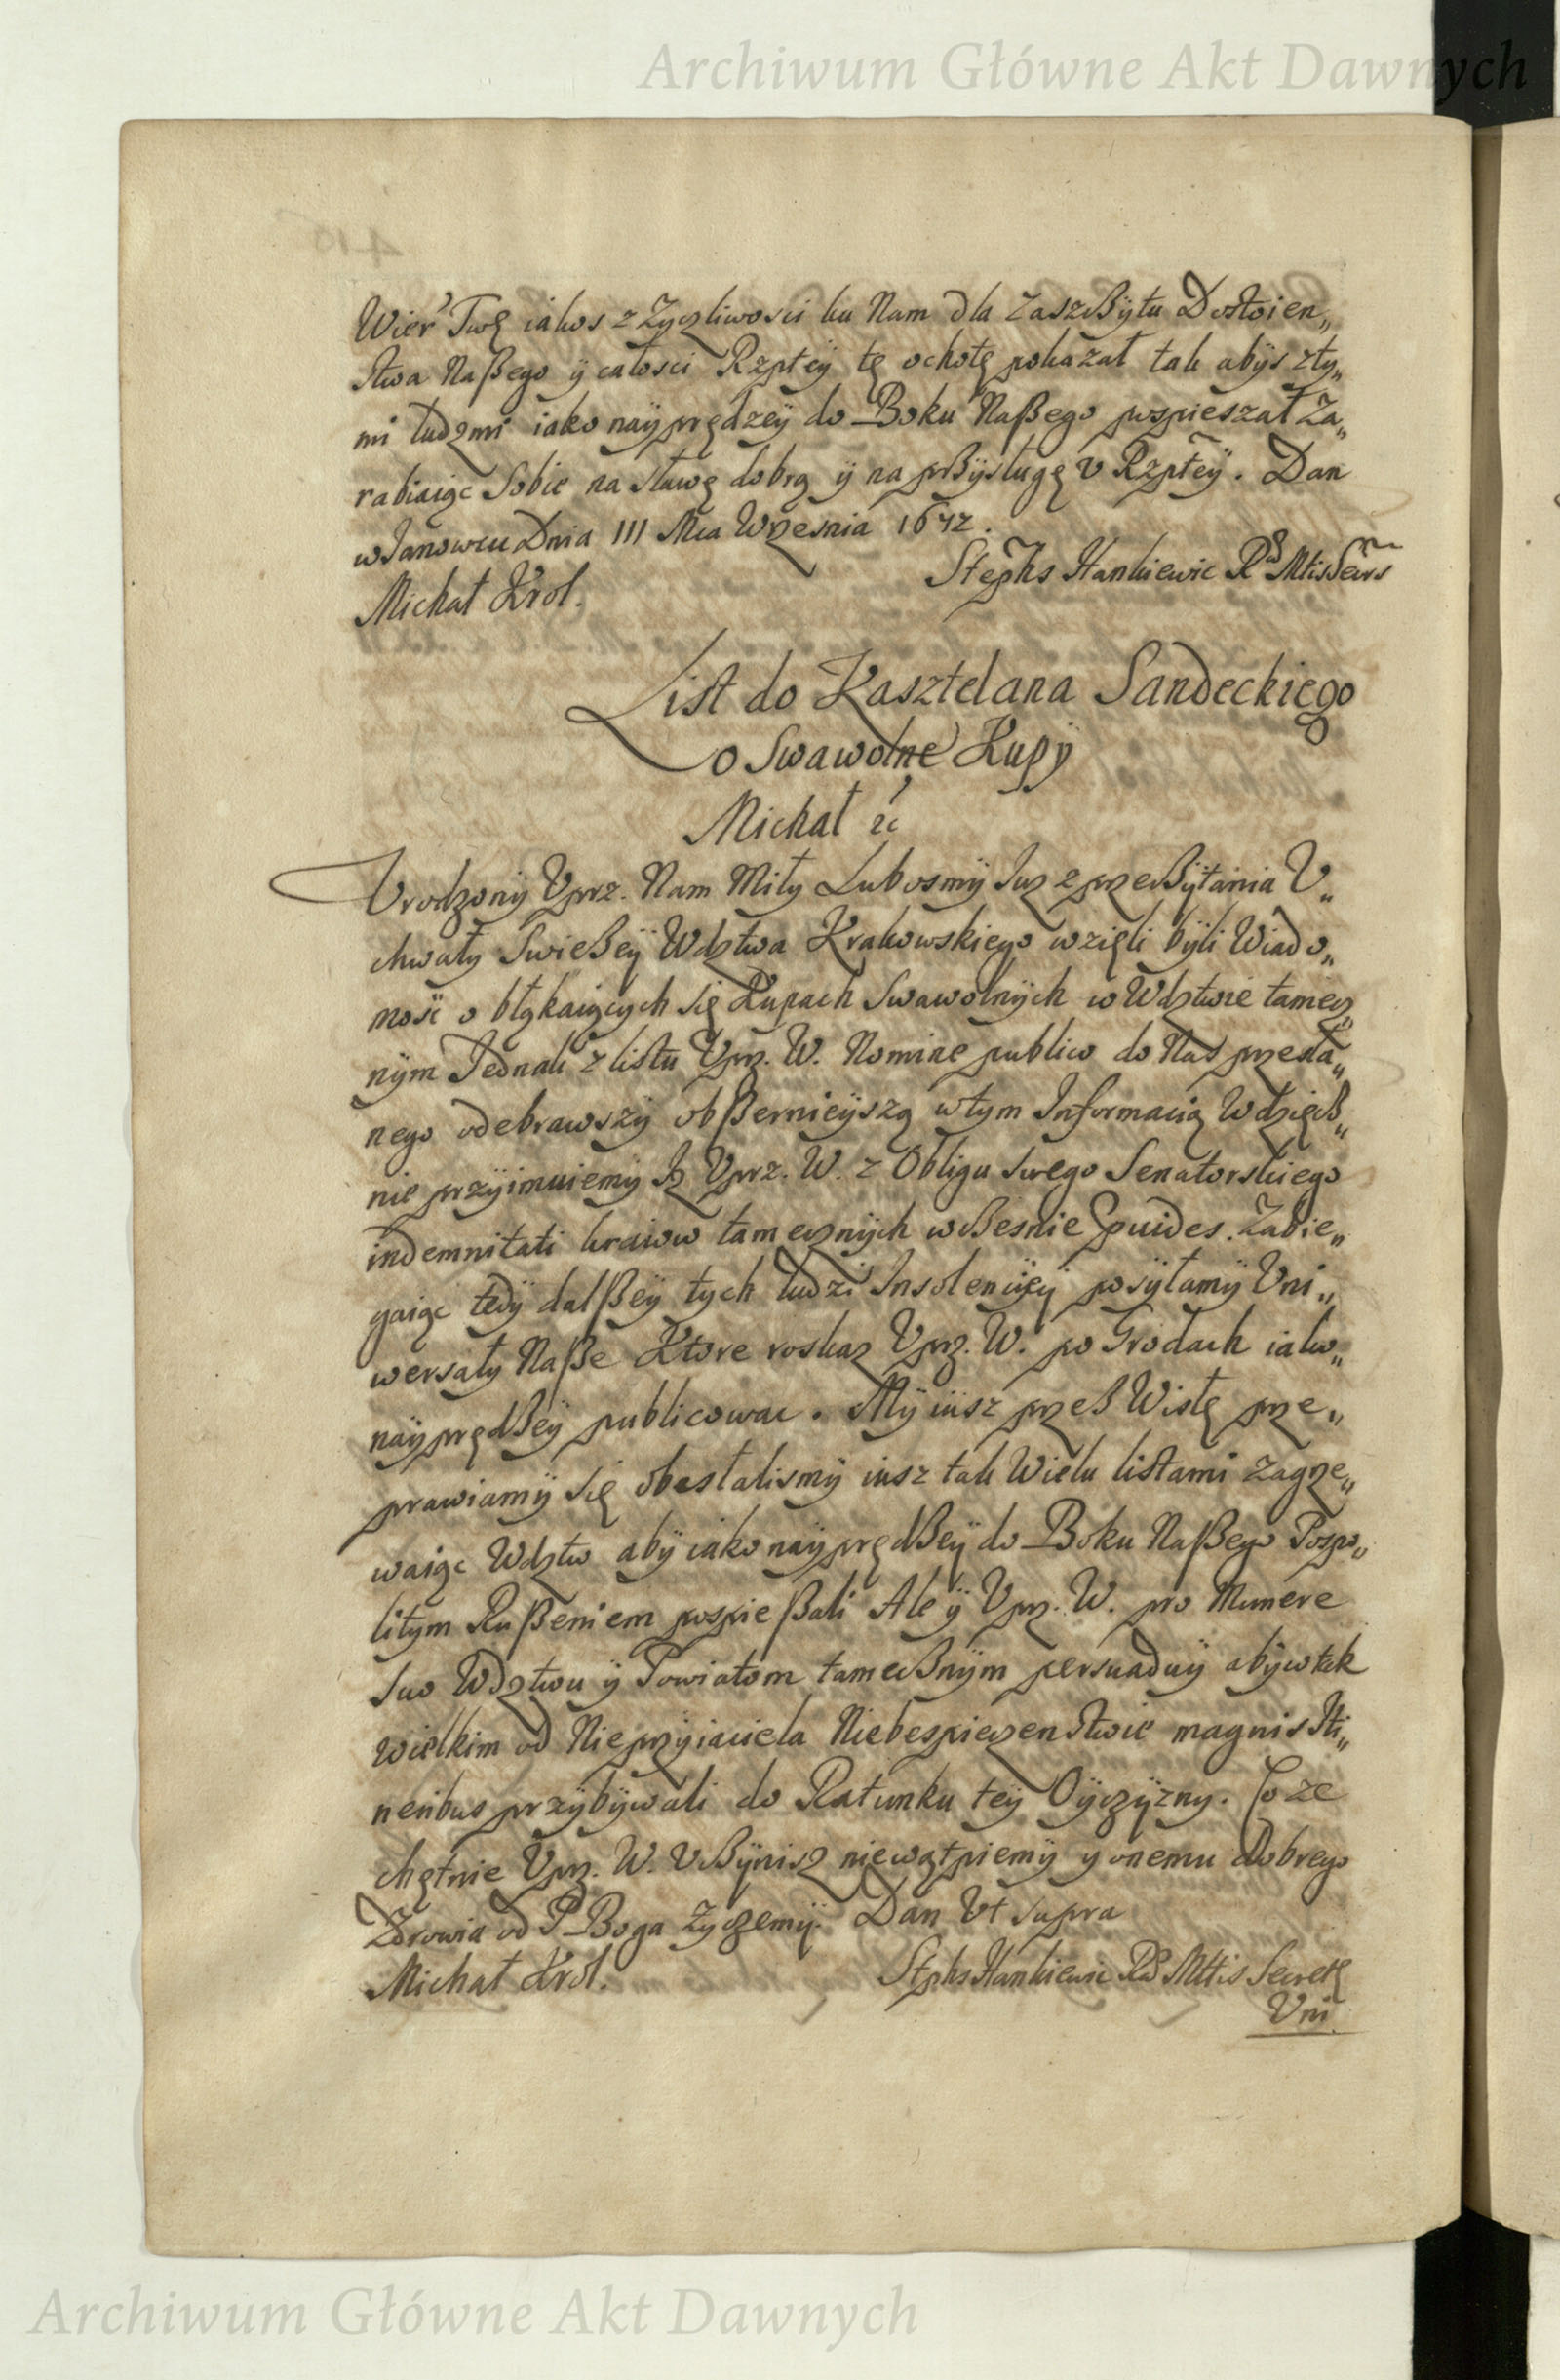 Archiwum Główne Akt Dawnych
Wier Twę iakos z Zyczliwosci ku Nam dla Zaszßytu Dostoien„
stwa Naßego ÿ całosci Rzptey tę ochotę pokazał tak abÿs zty„
mi ludzmi iako naÿprędzeÿ do Boku Naßego pospieszał Za„
rabiaiąc sobie na sławę dobrą ÿ na pßysługę v Rzptey. Dan
w Janowcu Dnia III Mca Wrzesnia 1672.
Michał Krol.
Stephs Hankiewic R S Mtis Secrs
List do Kasztelana Sandeckiego
o Swawolne Kupÿ
Michał &c
Vrodzonÿ Vprz. Nam Miły Lubosmÿ Juz z przeßÿtania V„
chwały Swießeÿ Wdztwa Krakowskiego wzięli bÿli Wiado„
mosc o błąkaiących się Kupach Swawolnÿch w Wdztwie tamecz„
nÿm Jednak z listu Vprz. W. Nomine publico do Nas przesła„
nego odebrawszÿ obßernieÿszą wtym Informacią Wdzięcß„
nie przÿimuiemÿ Jz Vprz. W. z Obligu swego Senatorskiego
indemnitati kraiow tamecznÿch wßesnie Prouides. Zabie„
gaiąc tedÿ dalßeÿ tych ludzi Insolencÿey posÿłamÿ Vni„
wersały Naße Ktore roskaz Vprz. W. po Grodach iako„
naÿprędßeÿ publicowac. Mÿ iusz przeß Wisłę prze„
prawiamÿ się obesłalismÿ iusz tak Wielu listami Zagrze„
waiąc Wdztwo abÿ iako naÿprędßeÿ do Boku Naßego Pospo„
litym Rußeniem pospießali Ale ÿ Vprz. W. pro Munere
suo Wdztwu ÿ Powiatom tamecßnÿm persuaduÿ abÿ w tak
wielkim od Nieprzÿiaciela Niebespieczenstwie magnis Iti„
neribus przÿbÿwali do Ratunku teÿ Oÿczÿzny. Co ze
chętnie Vprz. W. Vcßÿnisz niewątpiemÿ y onemu dobrego
Zdrowia od P Boga Zyczemÿ. Dan Vt supra
Michał Krol.
Stphs Hankiewic RS Mttis Secrets
Vni
Archiwum Główne Akt Dawnych